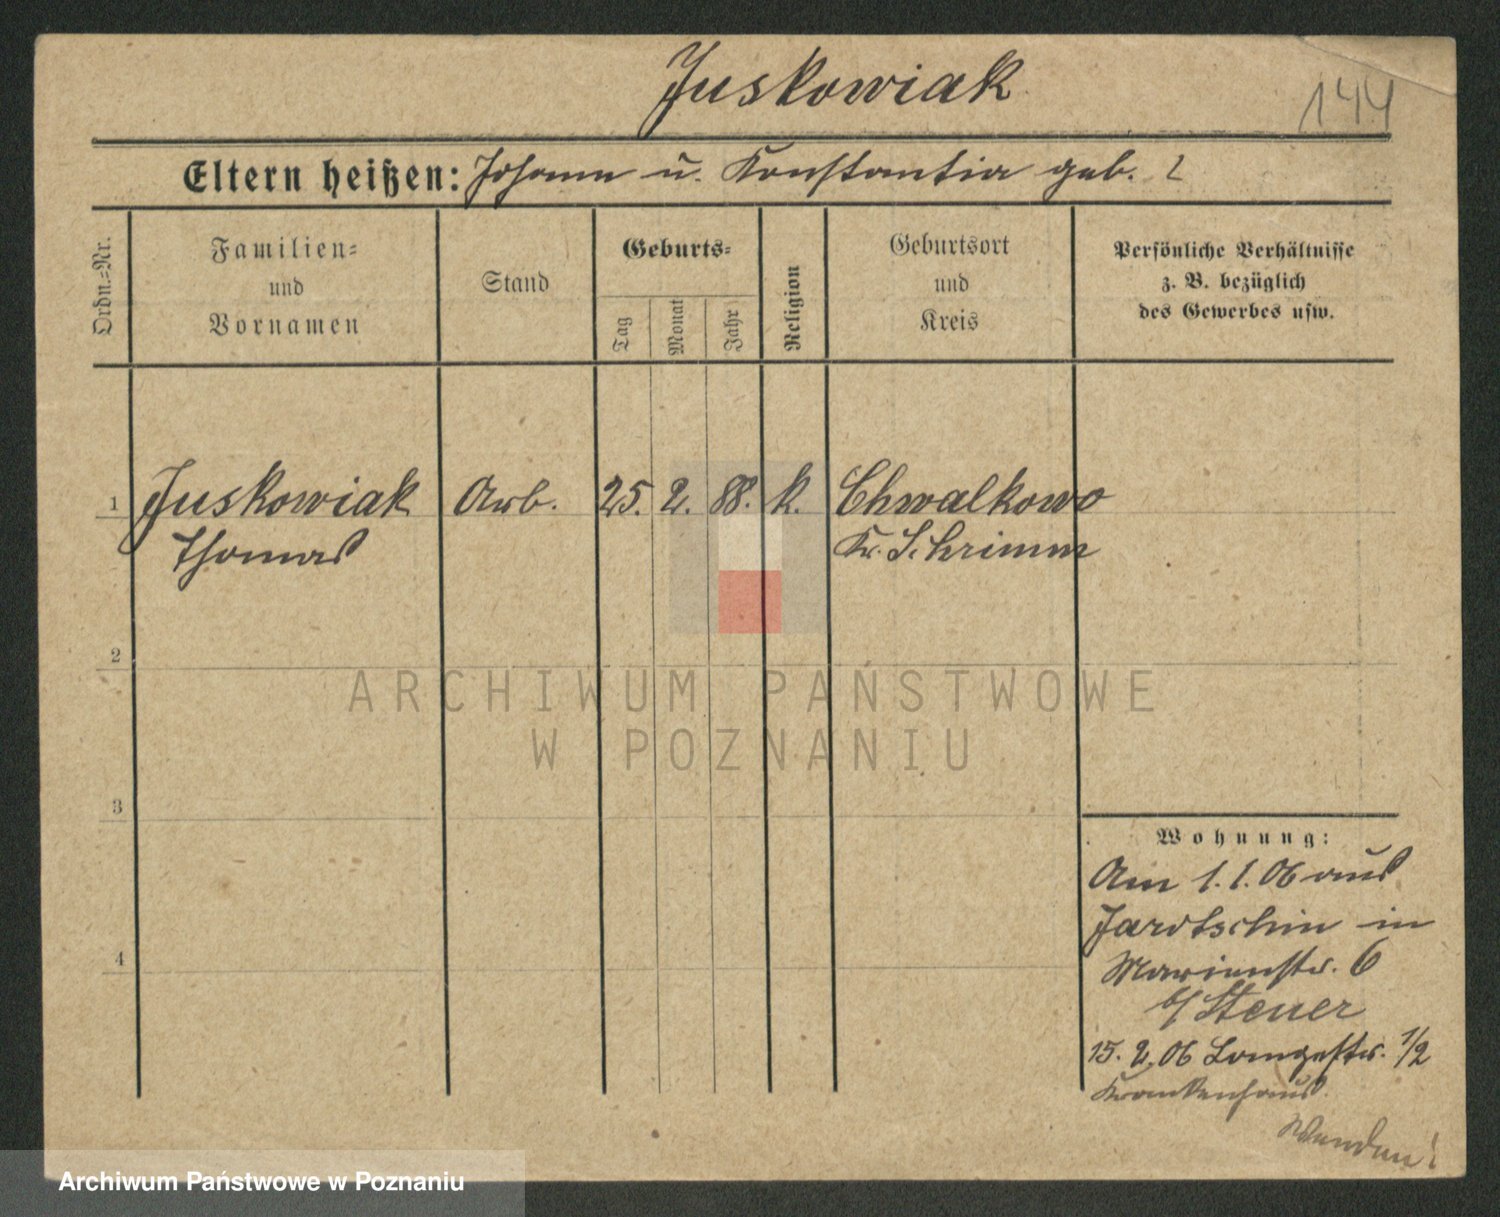 Juskowiak
144
Eltern heißen: Johann u. Konstantia geb. ?
Ordn.=Nr.
Familien=
und
Vornamen
Stand
Geburts=
Tag
Monat
Jahr
Religion
Geburtsort
und
Kreis
Persönliche Verhältnisse
z. B. bezüglich
des Gewerbes usw.
1 Juskowiak Arb. 25. 2. 88. k. Chwalkowo
Thomas Kr. Schrimm
2
3
4
Wohnung:
Am 1. 1. 06 aus
Jarotschin in
Marienstr. 6
b/ Steuer
15. 2. 06 Langestr. 1/2
Krankenhaus.
Wenden!
ARCHIWUM PAŃSTWOWE
W POZNANIU
Archiwum Państwowe w Poznaniu